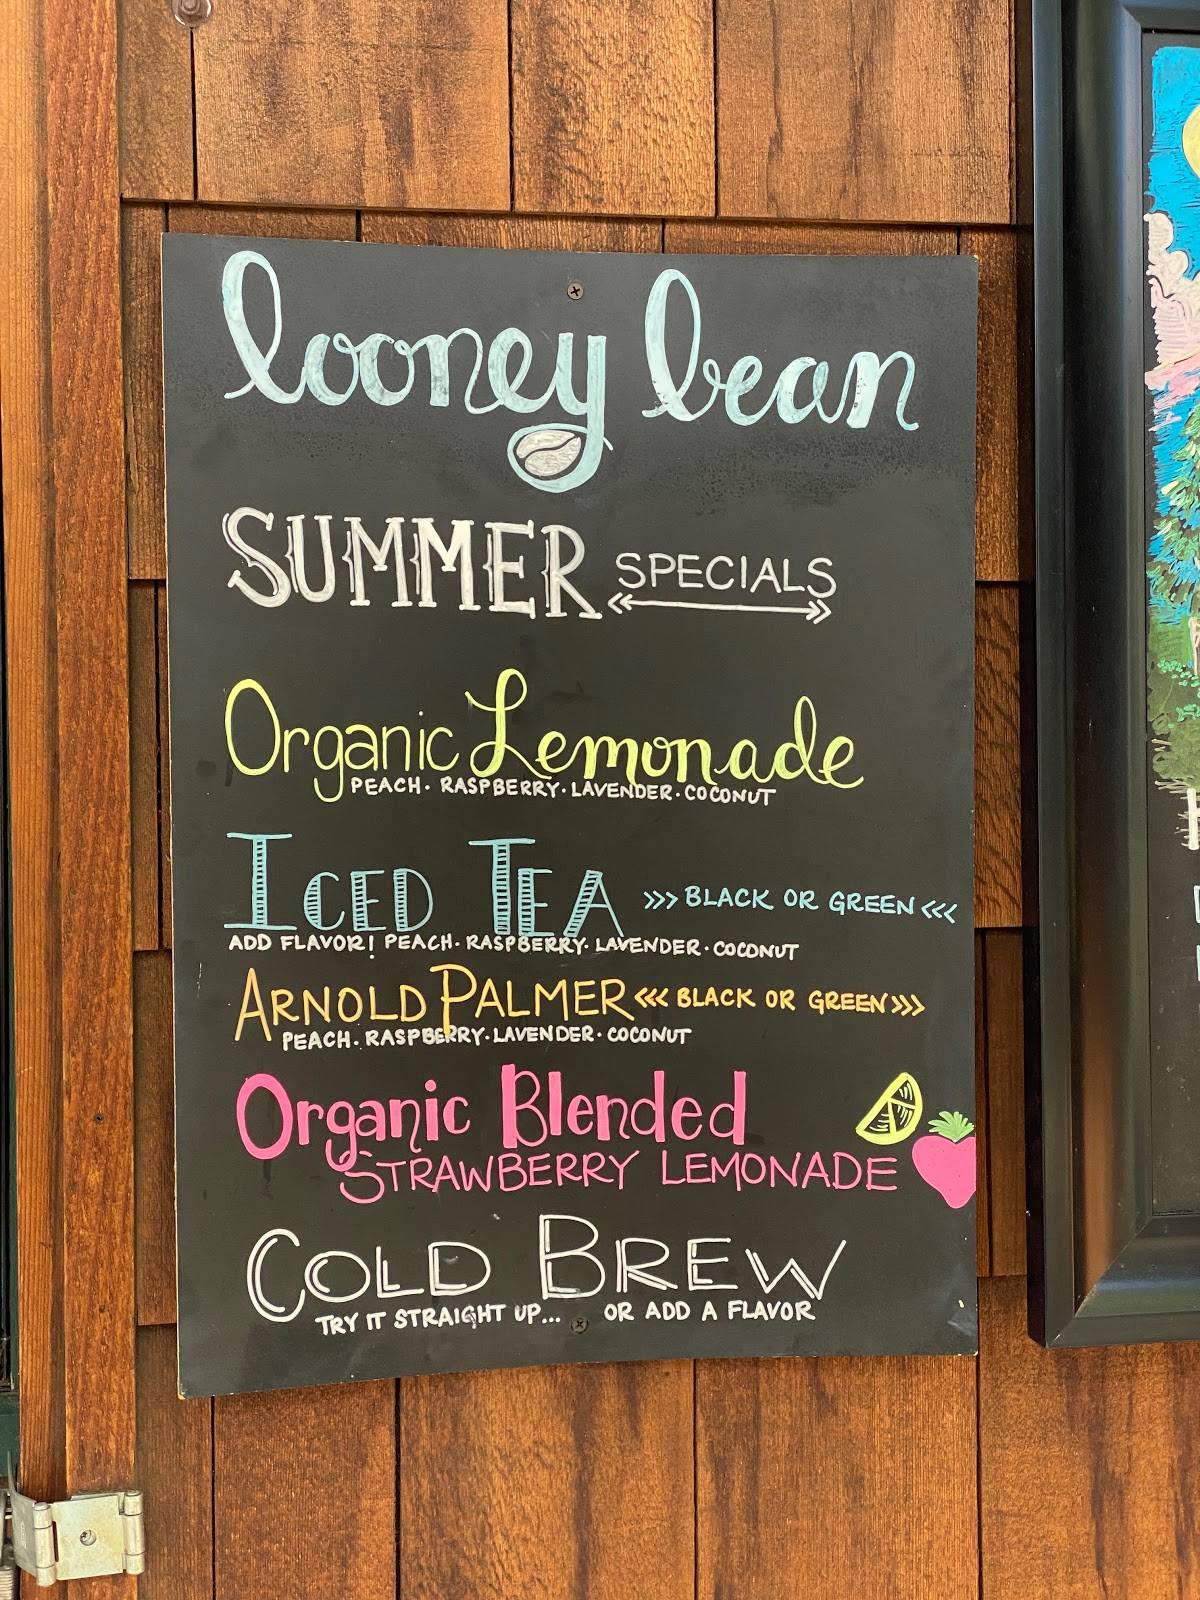 looney bean
SUMMER SPECIALS
Organic Lemonade
PEACH · RASPBERRY · LAVENDER · COCONUT
ICED TEA >>> BLACK OR GREEN <<<
ADD FLAVOR! PEACH · RASPBERRY · LAVENDER · COCONUT
ARNOLD PALMER <<< BLACK OR GREEN >>>
PEACH · RASPBERRY · LAVENDER · COCONUT
Organic Blended
STRAWBERRY LEMONADE
COLD BREW
TRY IT STRAIGHT UP... OR ADD A FLAVOR